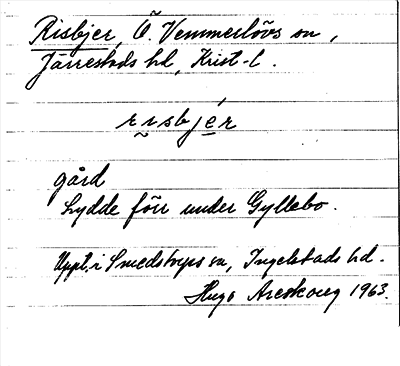 Risbjer, Ö. Vemmerlövs sn,
Järrestads hd, Krist-l.
risbjér
gård
Lydde förr under Gyllebo.
Uppt. i Smedstorps sn, Ingelstads hd.
Hugo Areskoug 1963.